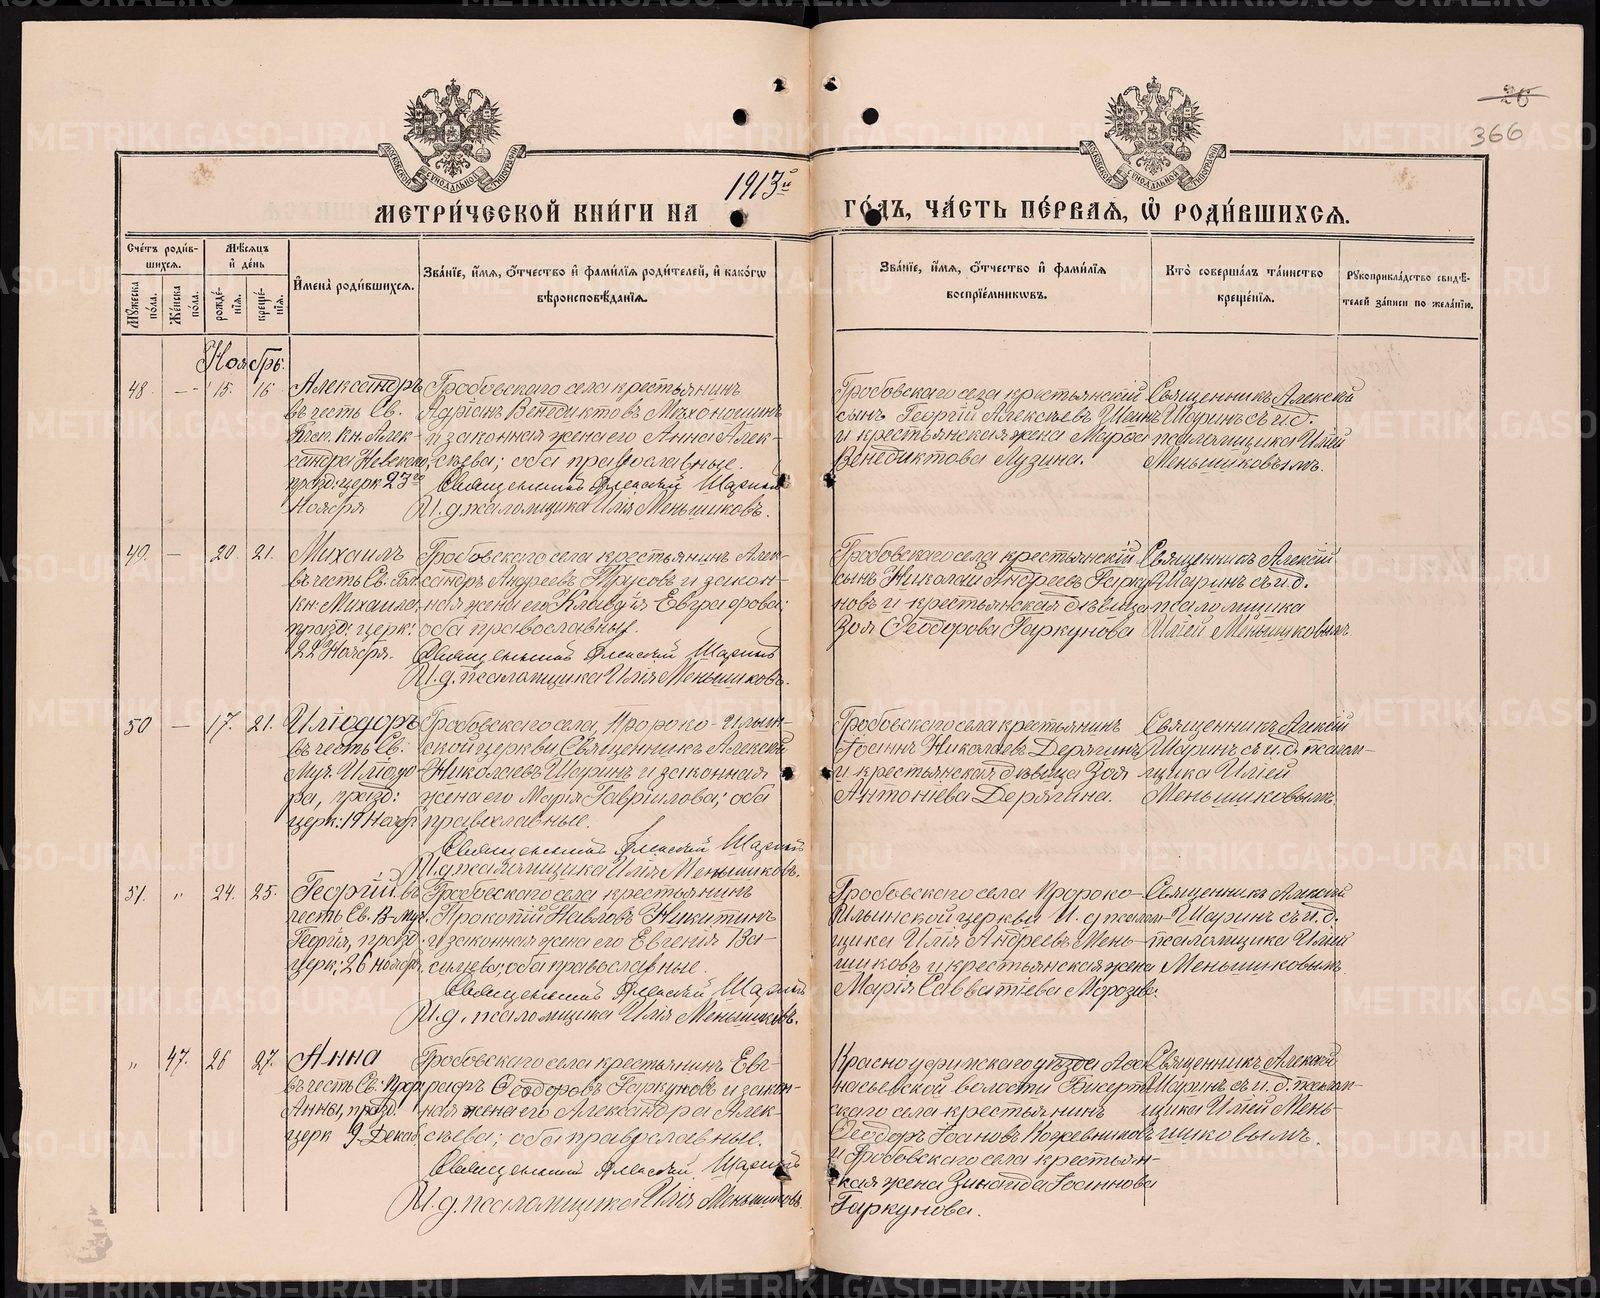 26
366
1913й
МЕТРИ́ЧЕСКОЙ КНИ́ГИ НА
ГО́ДЪ, ЧА́СТЬ ПЕ́РВАЯ, Ѡ҆ РОДИ́ВШИХСЯ.
Сче́тъ роди́вшихся.
Мꙋ́жеска по́ла.
Же́нска по́ла.
Мѣ́сяцъ и҆ де́нь
рожде́нїя.
креще́нїя.
И҆мена̀ роди́вшихся.
Зва́нїе, и҆́мя, ѻ҆́тчество и҆ фами́лїя роди́телей, и҆ како́гѡ
вѣроисповѣ́данїя.
Зва́нїе, и҆́мя, ѻ҆́тчество и҆ фами́лїя
воспрїе́мникѡвъ.
Кто̀ соверша́лъ та́инство
креще́нїя.
Рꙋкоприкла́дство свидѣ́-
телей за́писи по жела́нїю.
Ноябрь.
48 — 15. 16
Александръ
въ честь Св.
Благ. Кн. Алек-
сандра Невскаго,
празд: церк 23го
Ноября
Гробовскаго села крестьянинъ
Адріанъ Венедиктовъ Махоношинъ
и законная жена его Анна Алек-
сѣева; оба православные.
Священникъ Алексій Шаринъ
И. д. псаломщика Илія Меньшиковъ.
Гробовскаго села крестьянскій
сынъ Георгій Алексѣевъ Шеинъ
и крестьянская жена Марѳа
Венедиктова Лузина.
Священникъ Алексій
Шаринъ съ и. д.
псаломщика Иліей
Меньшиковымъ.
49. — 20 21.
Михаилъ
въ честь Св. Бл.
кн. Михаила,
празд: церк:
22 Ноября.
Гробовскаго села крестьянинъ Алек-
сандръ Андреевъ Трусовъ и закон-
ная жена его Клавдія Евграфова;
оба православные.
Священникъ Алексій Шаринъ
И. д. псаломщика Илія Меньшиковъ.
Гробовскаго села крестьянскій
сынъ Николай Андреевъ Гарку-
новъ и крестьянская дѣвица
Зоя Ѳеодорова Гаркунова
Священникъ Алексій
Шаринъ съ и. д.
псаломщика
Иліей Меньшиковымъ
50 — 17. 21.
Иліодоръ
въ честь Св.
Муч. Иліодо-
ра, празд:
церк: 19 Ноябр
Гробовскаго села, Пророко-Ильин-
ской церкви Священникъ Алексій
Николаевъ Шаринъ и законная
жена его Марія Гавріилова; оба
православные.
Священникъ Алексій Шаринъ
И. д. псаломщика Илія Меньшиковъ.
Гробовскаго села крестьянинъ
Іоаннъ Николаевъ Дерягинъ
и крестьянская дѣвица Зоя
Антоніева Дерягина.
Священникъ Алексій
Шаринъ съ и. д. псалом-
щика Иліей
Меньшиковымъ.
51. " 24. 25.
Георгій въ
честь Св. В-муч.
Георгія, празд.
церк: 26 ноября
Гробовскаго села крестьянинъ
Прокопій Павловъ Никитинъ
и законная жена его Евгенія Ва-
сильева; оба православные.
Священникъ Алексій Шаринъ
И. д. псаломщика Илія Меньшиковъ.
Гробовскаго села Пророко-
Ильинской церкви И. д. псалом-
щика Илія Андреевъ Мень-
шиковъ и крестьянская жена
Марія Савватіева Морозова.
Священникъ Алексій
Шаринъ съ и. д.
псаломщика Иліей
Меньшиковымъ.
" 47. 26 27.
Анна
въ честь Св: Прор
Анны, празд:
церк 9. Декаб
Гробовскаго села крестьянинъ Евг-
рафъ Ѳеодоровъ Гаркуновъ и закон-
ная жена его Александра Алек-
сѣева; оба православные.
Священникъ Алексій Шаринъ
И. д. псаломщика Илія Меньшиковъ
Красноуфимскаго уѣзда Аѳа-
насьевской волости Бисерт-
скаго села крестьянинъ
Ѳеодоръ Іоановъ Кожевниковъ
и Гробовскаго села крестьян-
ская жена Зинаида Іоаннова
Гаркунова.
Священникъ Алексій
Шаринъ съ и. д. псалом-
щика Иліей Мень-
шиковымъ.
METRIKI.GASO-URAL.RU